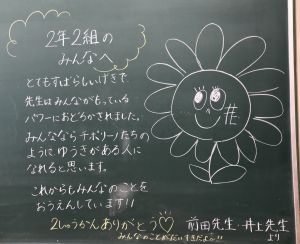 2年2組の
みんなへ
とてもすばらしいげきで、
先生はみんながもっている
パワーにおどろかされました。
みんなならチポリーノたちの
ように、ゆうきがある人に
なれると思います。
これからもみんなのことを
おうえんしています!!
2しゅうかんありがとう♡
みんなのことがだいすきだよ〜!!
前田先生・井上先生
より
井